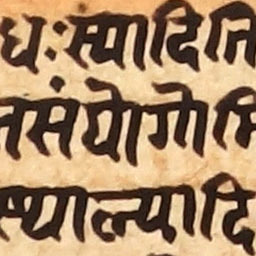 धः स्यादिति
तसंयोगोभि
स्थाल्यादि